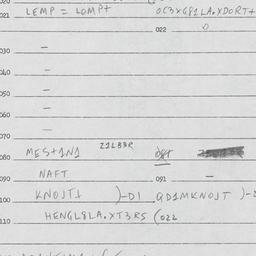 020
021 LEMP = LOMP+ OC3XG81LA.XDORT+
022
030 –
040 –
050 –
060 –
070
MES+1N1 Z1L88R
080
090 NAFT 091 –
100 KNOJT+ )-D1 QD1MKNOJT )-
110 HENGL8LA.XT3RS (022